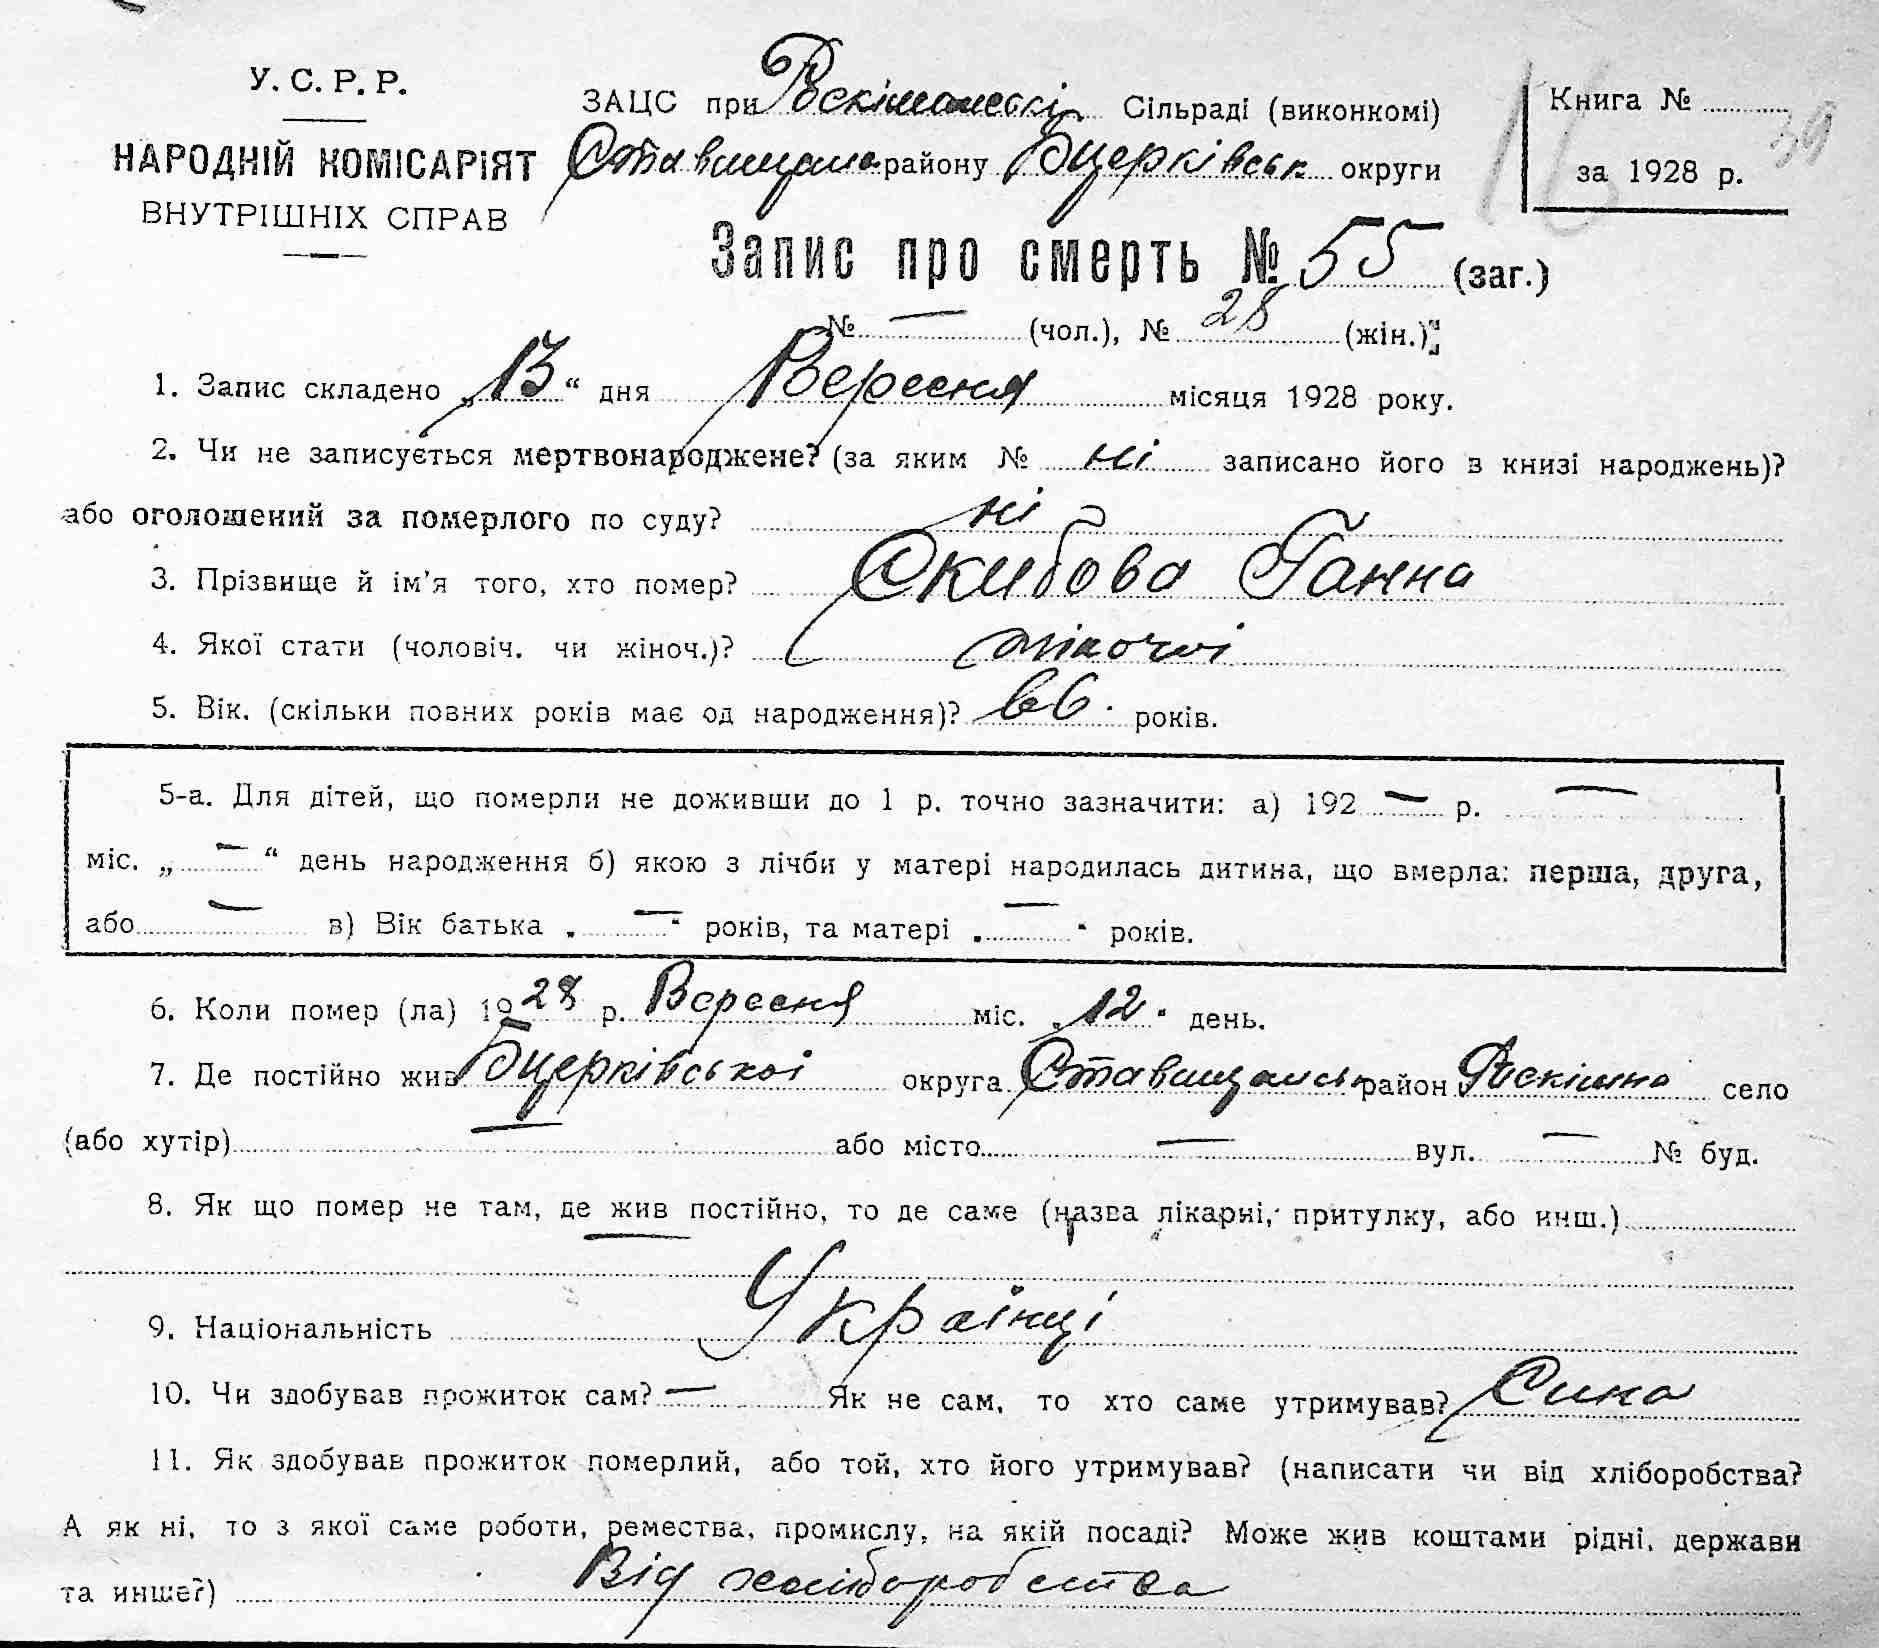 У. С. Р. Р.
НАРОДНІЙ КОМІСАРІЯТ
ВНУТРІШНІХ СПРАВ
ЗАЦС при Роскішанські Сільраді (виконкомі)
Ставищан району Бцерківськ округи
Книга №
за 1928 р.
39
16
Запис про смерть № 55 (заг.)
№ — (чол.), № 28 (жін.)
1. Запис складено „13“ дня Вересня місяця 1928 року.
2. Чи не записується мертвонароджене? (за яким № ні записано його в книзі народжень)?
або оголошений за померлого по суду? ні
3. Прізвище й ім’я того, хто помер? Скибова Ганна
4. Якої стати (чоловіч. чи жіноч.)? жіночої
5. Вік. (скільки повних років має од народження)? 66. років.
5-а. Для дітей, що померли не доживши до 1 р. точно зазначити: а) 192 — р. —
міс. „ — “ день народження б) якою з лічби у матері народилась дитина, що вмерла: перша, друга,
або — в) Вік батька „ — “ років, та матері „ — “ років.
6. Коли помер (ла) 1928 р. Вересня міс. „12“ день.
7. Де постійно жив Бцерківської округа Ставищансь район Роскішна село
(або хутір) — або місто — вул. — № буд.
8. Як що помер не там, де жив постійно, то де саме (назва лікарні, притулку, або инш.)
—
9. Національність Українці
10. Чи здобував прожиток сам? — Як не сам, то хто саме утримував? Сина
11. Як здобував прожиток померлий, або той, хто його утримував? (написати чи від хліборобства?
А як ні, то з якої саме роботи, ремества, промислу, на якій посаді? Може жив коштами рідні, держави
та инше?) Від хліборобства